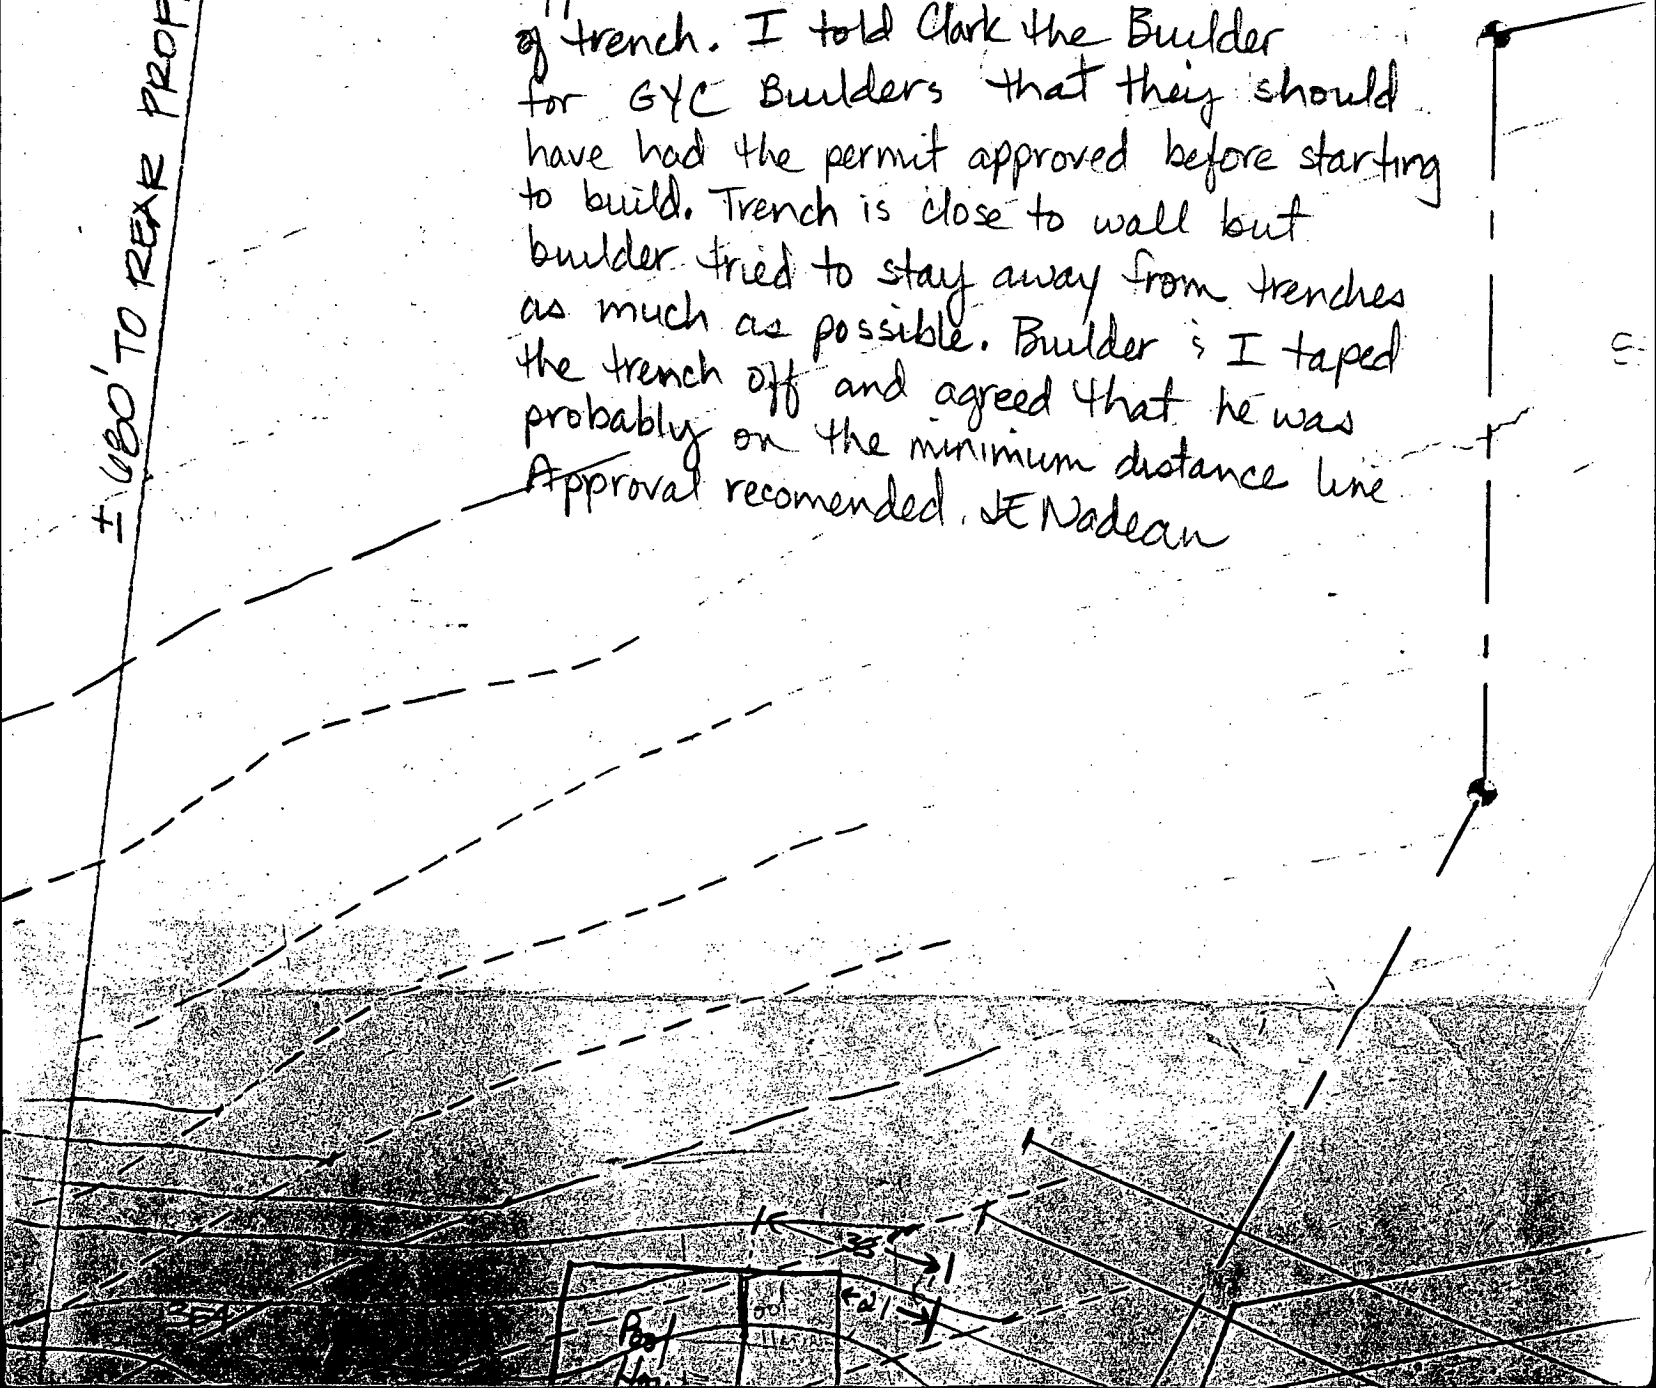 of trench. I told Clark the Builder
for GYC Builders that they should
have had the permit approved before starting
to build. Trench is close to wall but
builder tried to stay away from trenches
as much as possible. Builder & I taped
the trench off and agreed that he was
probably on the minimum distance line
Approval recomended. JE Nadeau
± 680' TO REAR PROP
35'
21
364
Pool